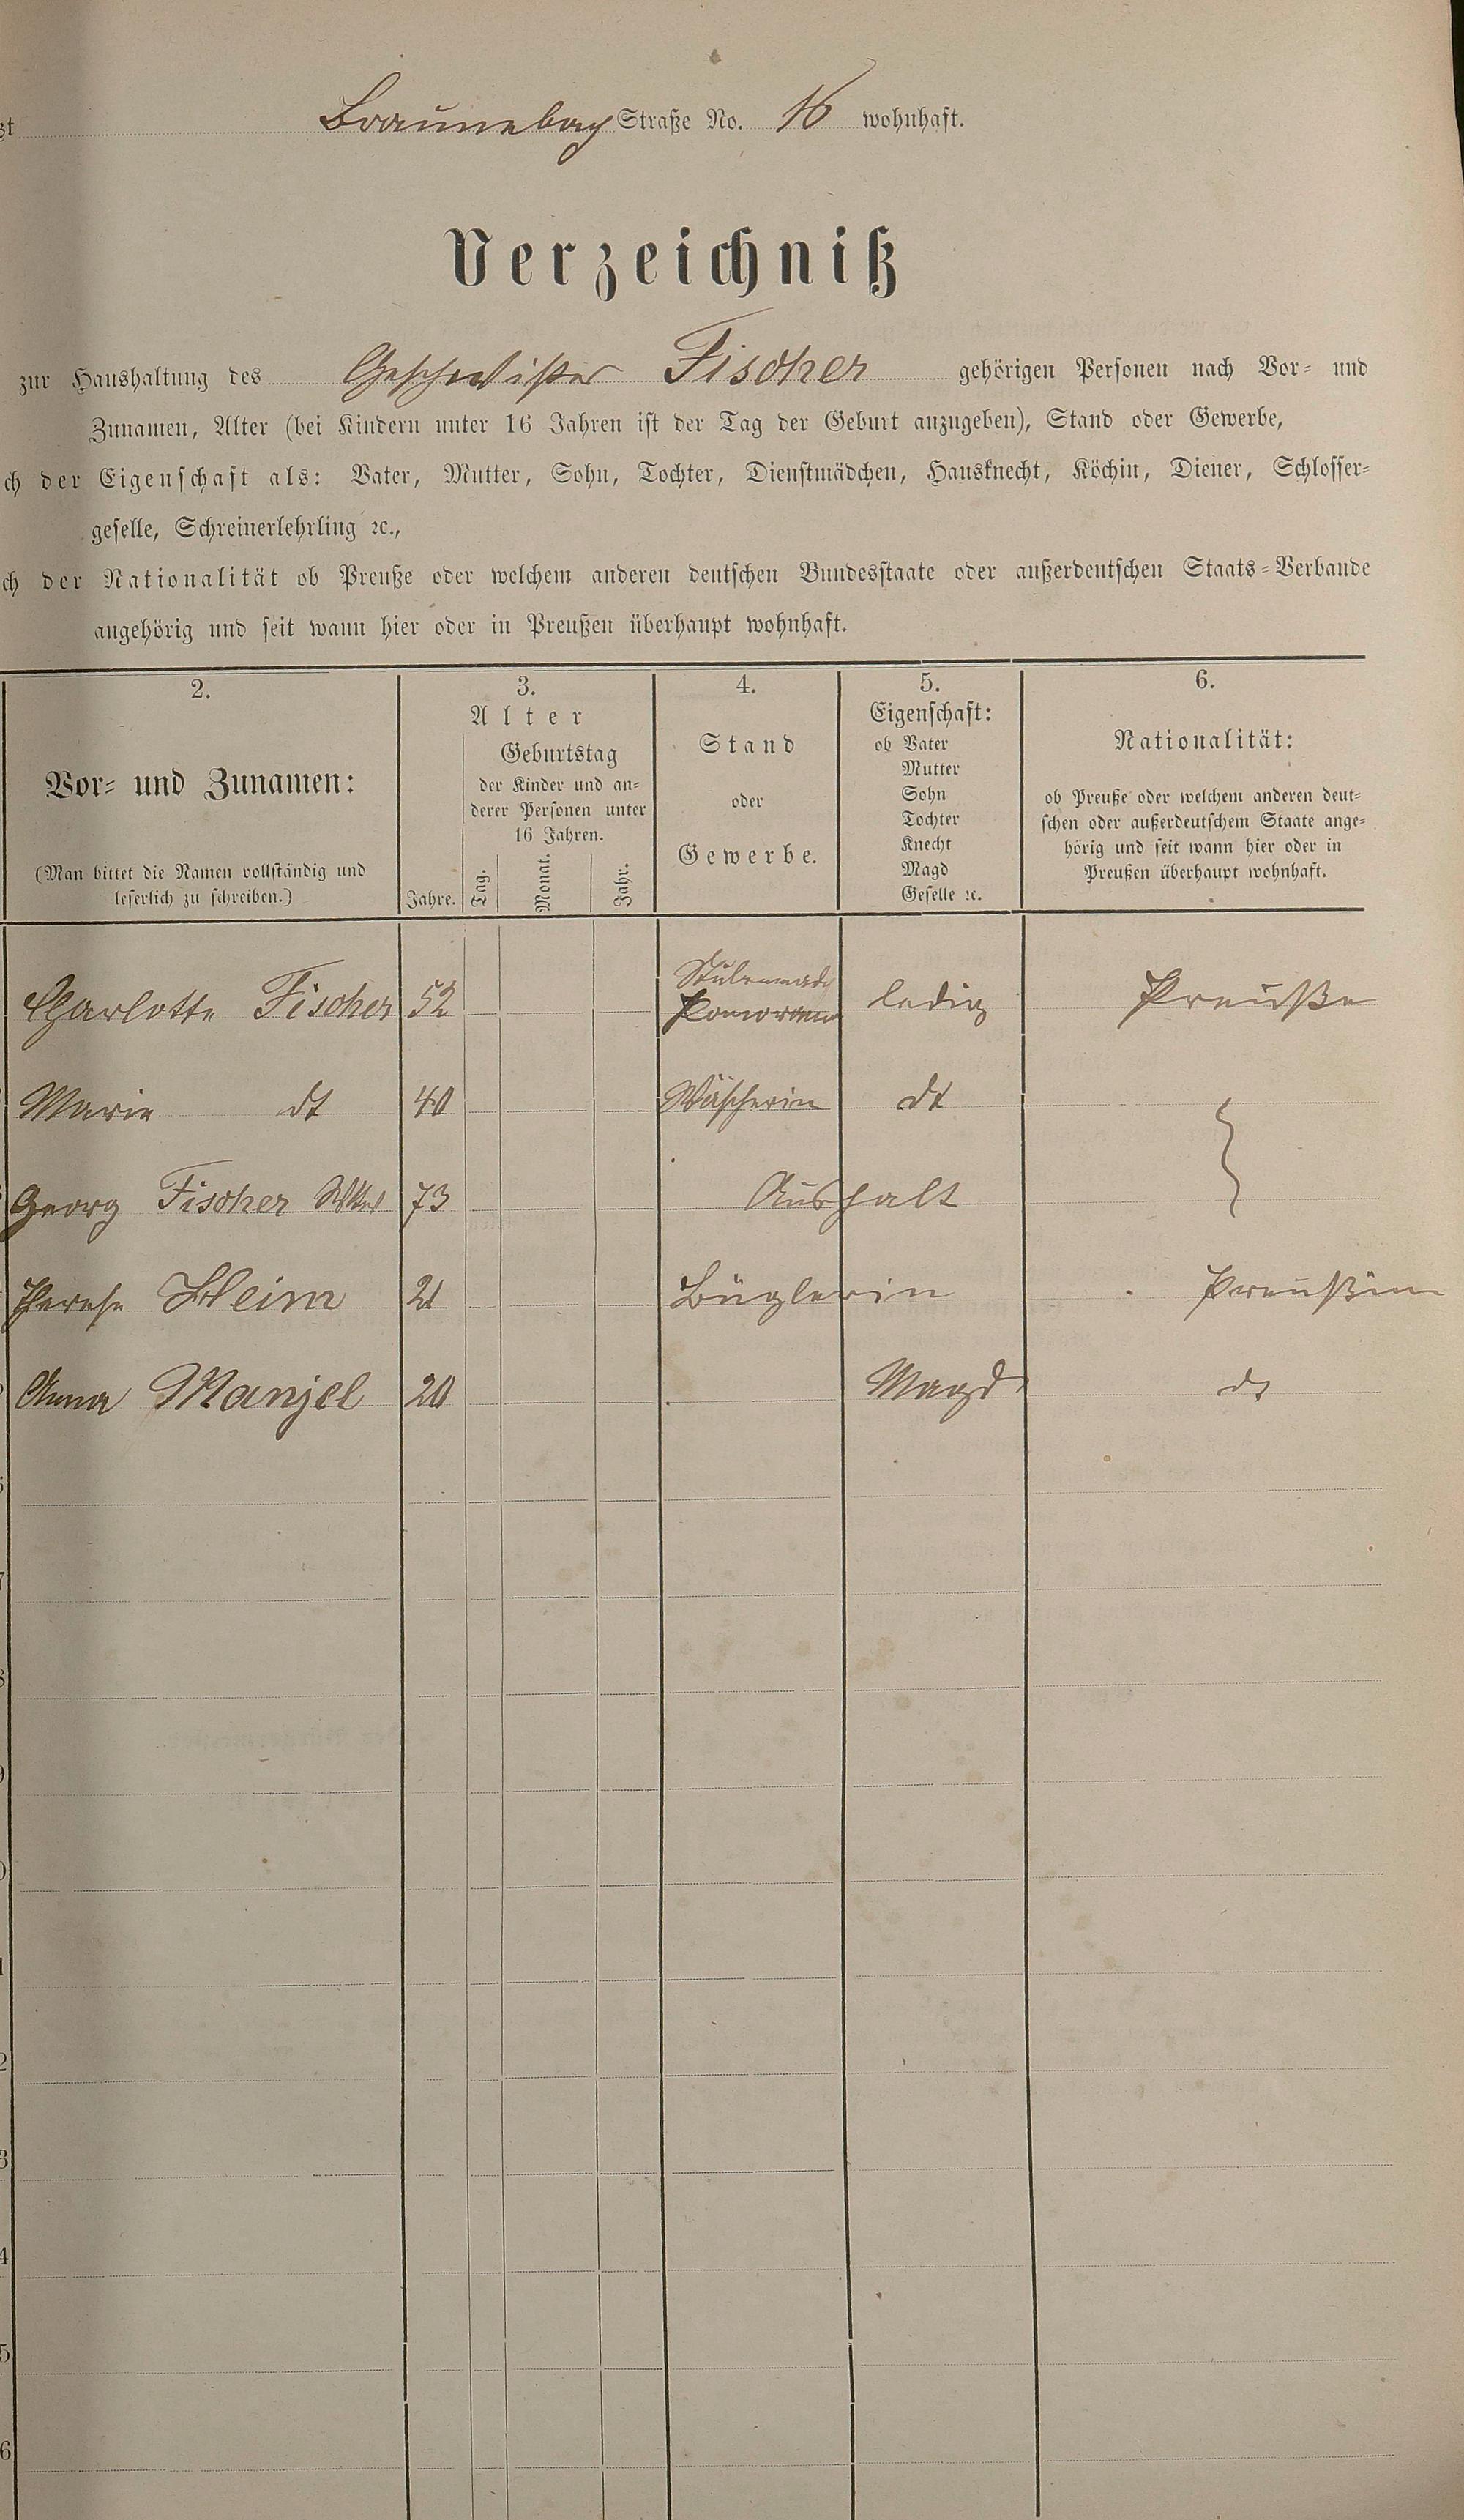 Braunebach Straße No. 16 wohnhaft.
Verzeichniß
zur Haushaltung des Geschwister Fischer gehörigen Personen nach Vor- und
Zunamen, Alter (bei Kindern unter 16 Jahren ist der Tag der Geburt anzugeben), Stand oder Gewerbe,
der Eigenschaft als: Vater, Mutter, Sohn, Tochter, Dienstmädchen, Hausknecht, Köchin, Diener, Schlosser-
geselle, Schreinerlehrling ꝛc.,
der Nationalität ob Preuße oder welchem anderen deutschen Bundesstaate oder außerdeutschen Staats-Verbande
angehörig und seit wann hier oder in Preußen überhaupt wohnhaft.
2.
Vor- und Zunamen:
(Man bittet die Namen vollständig und
leserlich zu schreiben.)
3.
Alter
Geburtstag
der Kinder und an-
derer Personen unter
16 Jahren.
Jahre. Tag. Monat. Jahr.
4.
Stand
oder
Gewerbe.
5.
Eigenschaft:
ob Vater
Mutter
Sohn
Tochter
Knecht
Magd
Geselle ꝛc.
6.
Nationalität:
ob Preuße oder welchem anderen deut-
schen oder außerdeutschem Staate ange-
hörig und seit wann hier oder in
Preußen überhaupt wohnhaft.
Charlotte Fischer 52 ledig Preuße
Marie dt 40 Wäscherin dt
Georg Fischer 73 Aushalt
Therese Heim 21 Büglerin Preußin
Anna Manjel 20 Magd dt